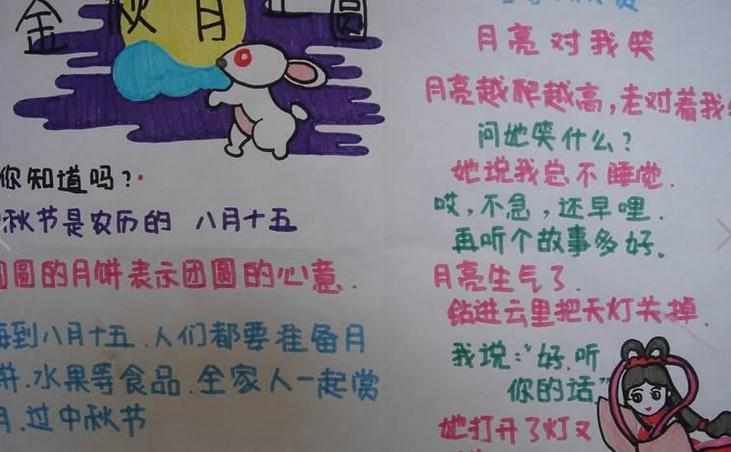 金秋月正圆
你知道吗？
中秋节是农历的 八月十五
圆圆的月饼表示团圆的心意.
每到八月十五.人们都要准备月
饼.水果等食品.全家人一起赏
月.过中秋节
月亮对我笑
月亮越爬越高，老对着我
问她笑什么？
她说我总不睡觉.
哎，不急，还早哩.
再听个故事多好.
月亮生气了.
钻进云里把天灯关掉.
我说："好.听
你的话"
她打开了灯又